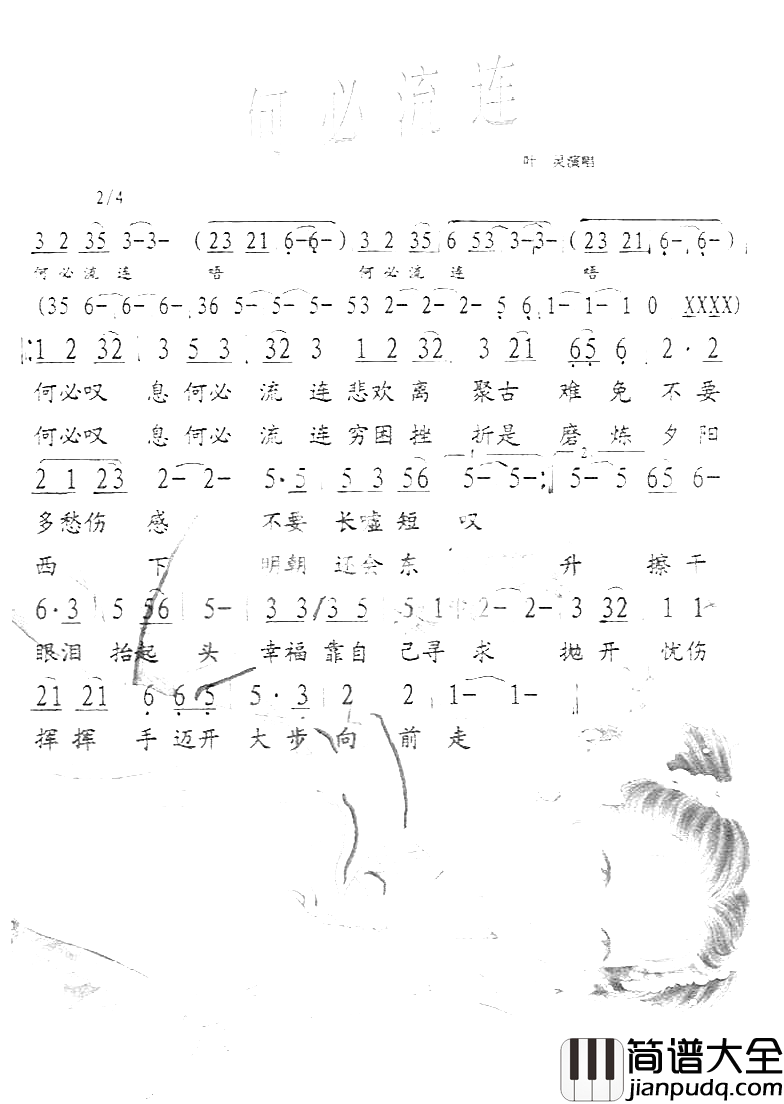 何必流连
叶灵演唱
2/4
3 2 35 3-3- (23 21 6-6-) 3 2 35 6 53 3-3- (23 21 6-6-)
何必流连 唔 何必流连 唔
(35 6- 6- 6- 36 5- 5- 5- 53 2- 2- 2- 5 6 1- 1- 1 0 XXXX)
1 2 32 3 5 3 32 3 1 2 32 3 21 65 6 2· 2
何必叹息何必流连悲欢离聚古难免不要
何必叹息何必流连穷困挫折是磨炼夕阳
2 1 23 2- 2- 5·5 5 3 56 1 5- 5- 2 5- 5 65 6-
多愁伤感 不要长嘘短叹
西下 明朝还会东升擦干
6·3 5 56 5- 3 3 3 5 5 1 2- 2- 3 32 1 1
眼泪抬起头幸福靠自己寻求抛开忧伤
21 21 6 6 5 5· 3 2 2 1- 1-
挥挥手迈开大步向前走
简谱大全
jianpudq.com